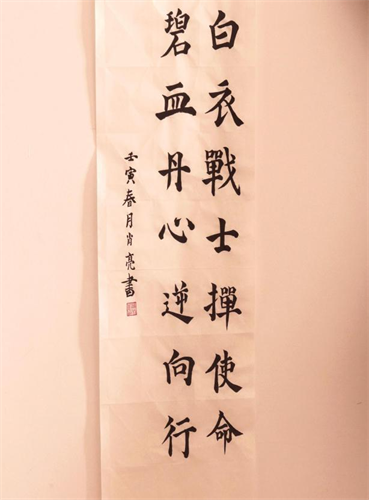 白衣戰士撣使命
碧血丹心逆向行
壬寅春月肖亮書